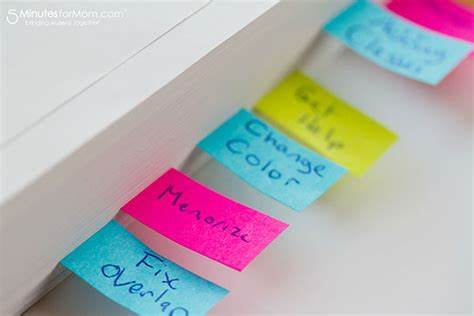 5MinutesforMom.com™
bringing moms together
Adding
Classes
Get
Help
Change
Color
Memorize
Fix
Overlap